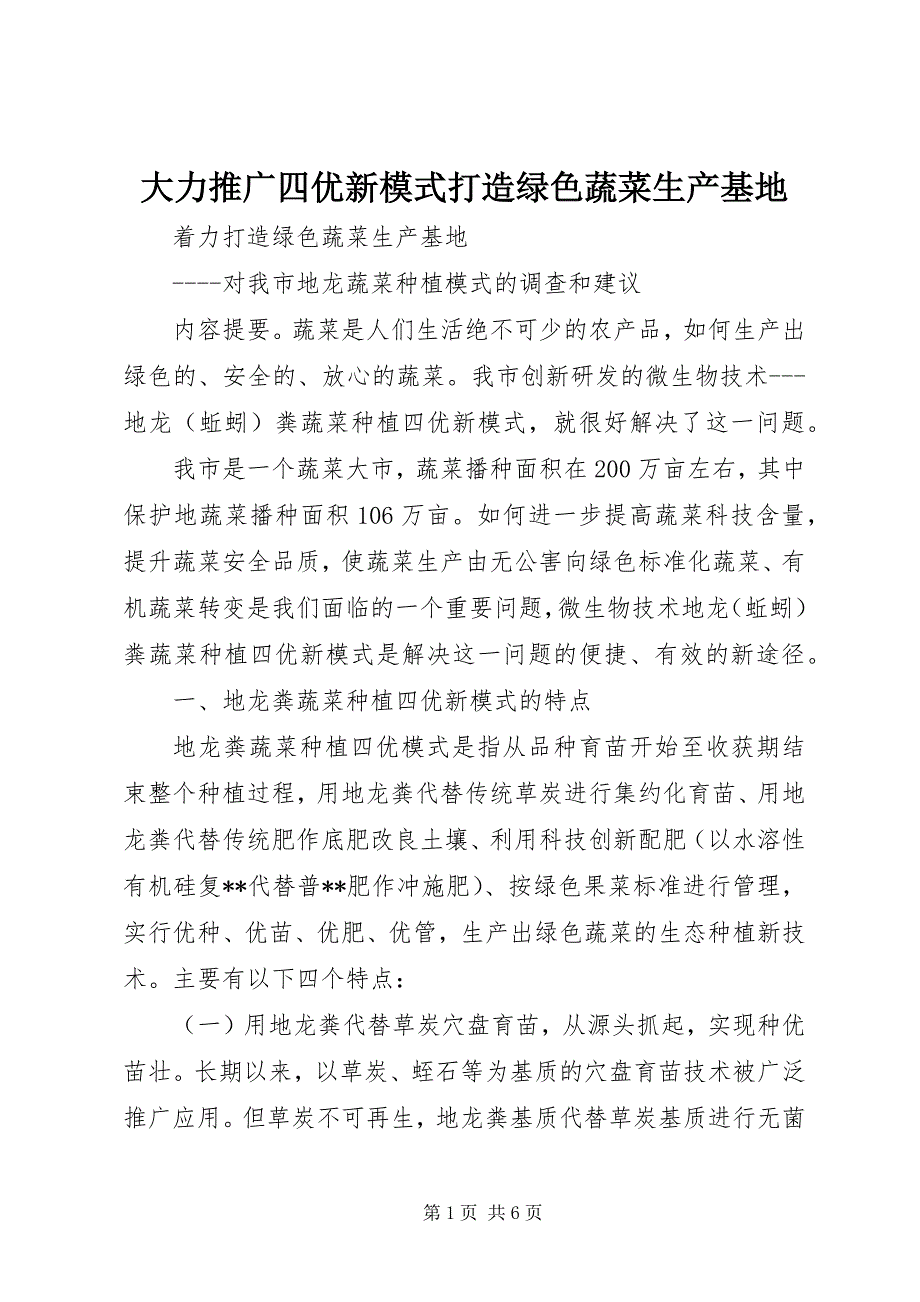 大力推广四优新模式打造绿色蔬菜生产基地
着力打造绿色蔬菜生产基地
----对我市地龙蔬菜种植模式的调查和建议
内容提要。蔬菜是人们生活绝不可少的农产品，如何生产出
绿色的、安全的、放心的蔬菜。我市创新研发的微生物技术---
地龙（蚯蚓）粪蔬菜种植四优新模式，就很好解决了这一问题。
我市是一个蔬菜大市，蔬菜播种面积在 200 万亩左右，其中
保护地蔬菜播种面积 106 万亩。如何进一步提高蔬菜科技含量，
提升蔬菜安全品质，使蔬菜生产由无公害向绿色标准化蔬菜、有
机蔬菜转变是我们面临的一个重要问题，微生物技术地龙（蚯蚓）
粪蔬菜种植四优新模式是解决这一问题的便捷、有效的新途径。
一、地龙粪蔬菜种植四优新模式的特点
地龙粪蔬菜种植四优模式是指从品种育苗开始至收获期结
束整个种植过程，用地龙粪代替传统草炭进行集约化育苗、用地
龙粪代替传统肥作底肥改良土壤、利用科技创新配肥（以水溶性
有机硅复**代替普**肥作冲施肥）、按绿色果菜标准进行管理，
实行优种、优苗、优肥、优管，生产出绿色蔬菜的生态种植新技
术。主要有以下四个特点：
（一）用地龙粪代替草炭穴盘育苗，从源头抓起，实现种优
苗壮。长期以来，以草炭、蛭石等为基质的穴盘育苗技术被广泛
推广应用。但草炭不可再生，地龙粪基质代替草炭基质进行无菌
第 1 页 共 6 页